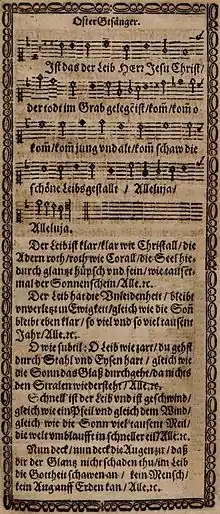 Oster Gesänger.
Ist das der Leib Herr Jesu Christ/
der todt im Grab gelegẽ ist/kom̃/kom̃ o
kom̃/kom̃ jung vnd alt/kom̃ schaw die
schöne Leibsgestallt / Alleluja/
Alleluja.
Der Leib ist klar/klar wie Christall/die
Adern roth/roth wie Corall/die Seel hie-
durch glantz hüpsch vnd fein/wie tausent
mal der Sonnenschein/Alle.ꝛc.
Der Leib hat die Vnleidenheit / bleibt
vnverletzt in Ewigkeit/gleich wie die Soñ
bleibt eben klar/so viel vnd so viel tausent
Jahr/Alle.ꝛc.
O wie subtil: O Leib wie zart/du gehst
durch Stahl vnd Eysen hart/ gleich wie
die Sonn das Glaß durchgeht/da nichts
den Stralen widersteht/ Alle.ꝛc.
Schnell ist der Leib vnd ist geschwind/
gleich wie ein Pfeil vnd gleich dem Wind/
gleich wie die Sonn viel tausent Meil/
die welt vmblaufft in schneller eil/Alle.ꝛc.
Nun deck/nun deck die Augen zu/daß
dir der Glantz nicht schaden thu/im Leib
die Gottheit schawen an/ kein Mensch/
kein Aug auff Erden kan/Alle.ꝛc.